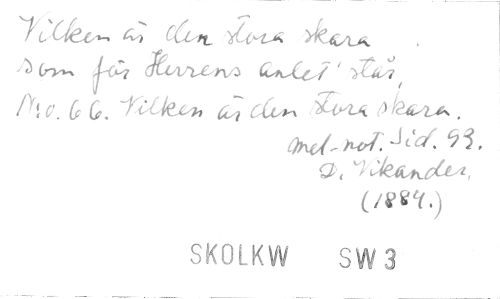 Vilken är den stora skara
som för Herrens anlet' står,
N:o. 66. Vilken är den stora skara.
mel-not. Sid. 93.
D. Vikander.
(1884.)
SKOLKW SW 3